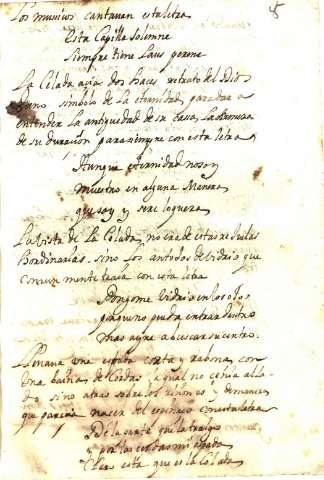 5
los musicos cantauan esta letra
Esta Capilla Solemne
Siempre tiene Laus perenne
La Celada azia dos haces retrato del Dios
Jano simbolo de la eternidad, para dar a
entender la antiguedad de su casa, la
de su duracion para siempre con esta letra
Aunque eternidad no soy
muestro en alguna Manera
que soy y sere lo que era
La vista de La Celada, no era de estas redecillas
hordinarias, sino los antojos de Vidrio que
comunmente traia con esta letra
Pongome Vidrio en los ojos
porque no pueda entrar dentro
mas ayre a buscar su centro
Lleuaua una espada corta y rabona con
una baina de Cerdas la qual no ceñia alla
do sino atras sobre los riñones y de manera
que parecia nacer del con esta letra
De la suerte que la traigo
y por las cerdas mi espada
Claro esta que es la Colada